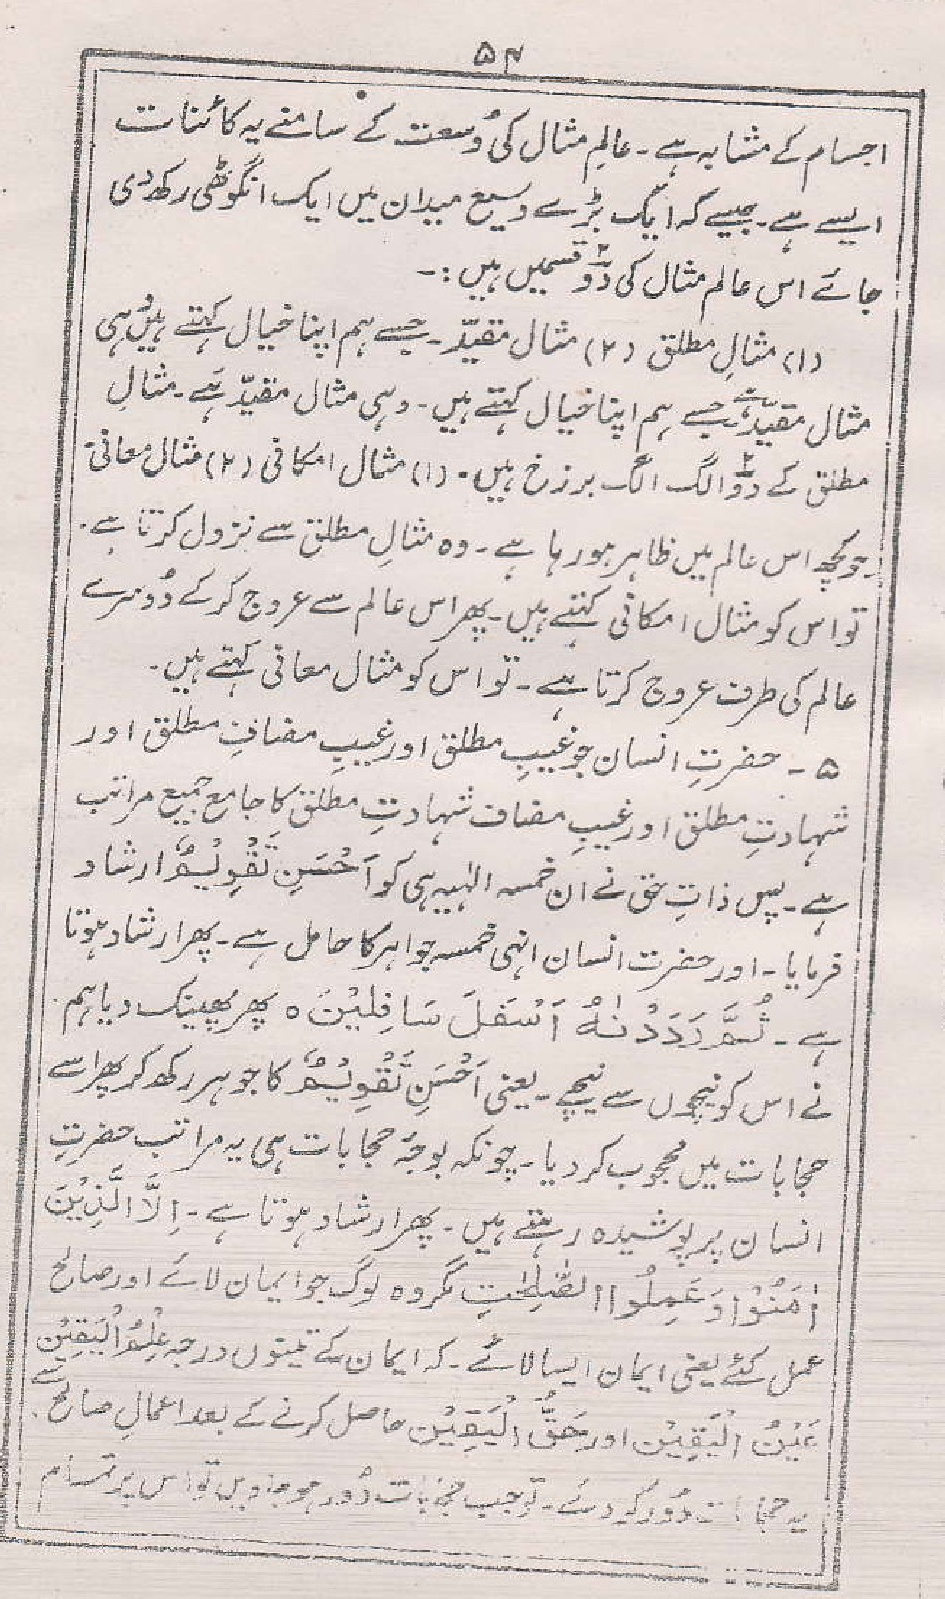 ۵۴
اجسام کے مشابہ ہے۔ عالمِ مثال کی وُسعت کے سامنے یہ کائنات
ایسے ہے۔ جیسے کہ ایک بڑے وسیع میدان میں ایک انگوٹھی رکھ دی
جائے اس عالم مثال کی دو۲ قسمیں ہیں :۔
(۱) مثالِ مطلق (۲) مثال مقیدّ۔ جسے ہم اپنا خیال کہتے ہیں وُہی
مثال مقیدّ ہے جسے ہم اپنا خیال کہتے ہیں۔ وہی مثال مقیدّ ہے۔ مثالِ
مطلق کے دو۲ الگ الگ برزخ ہیں۔ (۱) مثال امکانی (۲) مثال معانی۔
جو کچھ اس عالم میں ظاہر ہو رہا ہے۔ وہ مثالِ مطلق سے نزول کرتا ہے۔
تو اس کو مثال امکانی کہتے ہیں۔ پھر اس عالم سے عروج کر کے دُوسرے
عالم کی طرف عروج کرتا ہے۔ تو اس کو مثال معانی کہتے ہیں۔
۵ ۔ حضرتِ انسان جو غیبِ مطلق اور غیبِ مضافِ مطلق اور
شہادتِ مطلق اور غیبِ مضاف شہادتِ مطلق کا جامع جمیع مراتب
ہے۔ پس ذاتِ حق نے ان خمسہ الہٰیہ ہی کو اَحْسَنِ تَقْوِیْمٍ ارشاد
فرمایا۔ اور حضرت انسان انہی خمسہ جواہر کا حامل ہے۔ پھر ارشاد ہوتا
ہے۔ ثُمَّ رَدَدْنٰهُ اَسْفَلَ سَافِلِیْنَ ہ پھر پھینک دیا ہم
نے اس کو نیچوں سے نیچے۔ یعنی اَحْسَنِ تَقْوِیْمٍ کا جوہر رکھ کر پھر اسے
حجابات میں محجوب کر دیا۔ چونکہ بوجہُ حجابات ہی یہ مراتب حضرتِ
انسان پر پوشیدہ رہتے ہیں۔ پھر ارشاد ہوتا ہے۔ اِلَّا الَّذِیْنَ
اٰمَنُوْا وَعَمِلُوا الصّٰلِحٰتِ مگر وہ لوگ جو ایمان لائے اور صالح
عمل کئے یعنی ایمان ایسا لائے۔ کہ ایمان کے تینوں درجہ عِلْمُ الْیَقِیْن
عَیْنُ الْیَقِیْن اور حَقُّ الْیَقِیْن حاصل کرنے کے بعد اعمالِ صالح سے
یہ حجابات دُور کر دئے۔ تو جب حجابات دُور ہو جاویں تو اس پر تمام